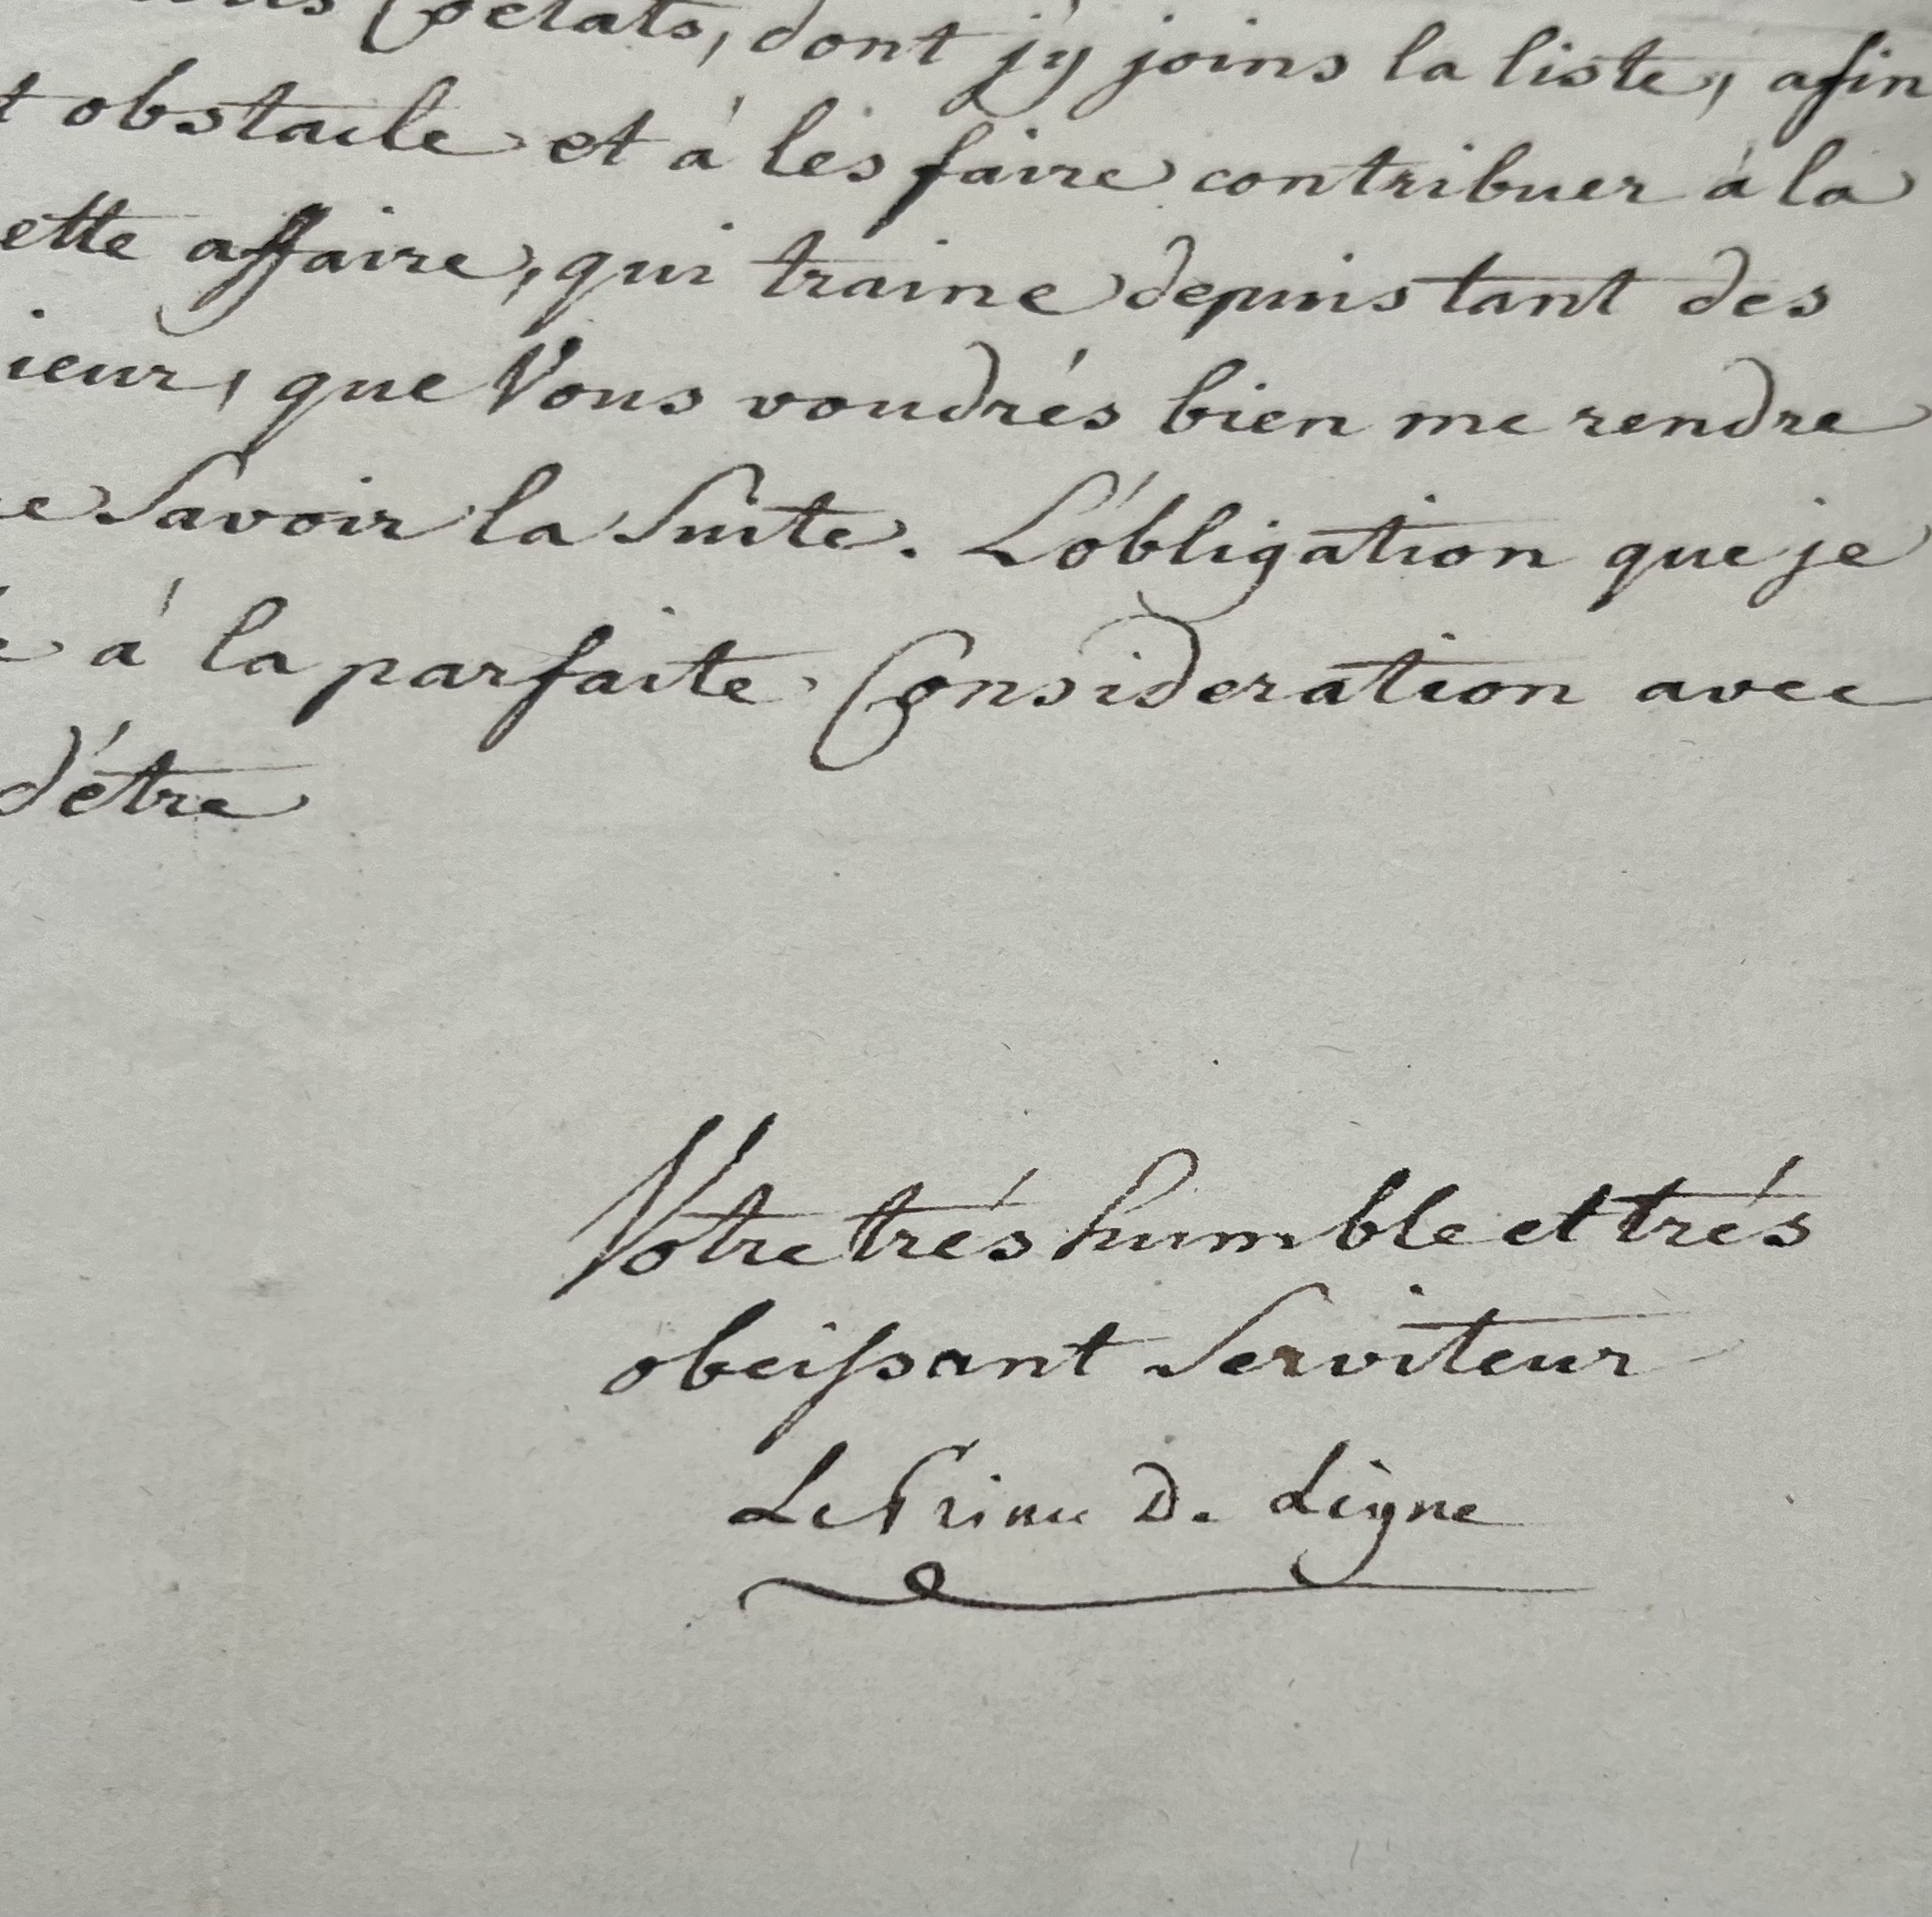 dont j'y joins la liste, afin
obstacle et á les faire contribuer á la
ette affaire, qui traine depuis tant des
ieur, que Vous voudrés bien me rendre
e Savoir la Suite. L'obligation que je
á la parfaite Consideration avec
d'étre
Votre trés humble et trés
obeissant Serviteur
Le Prince De Ligne